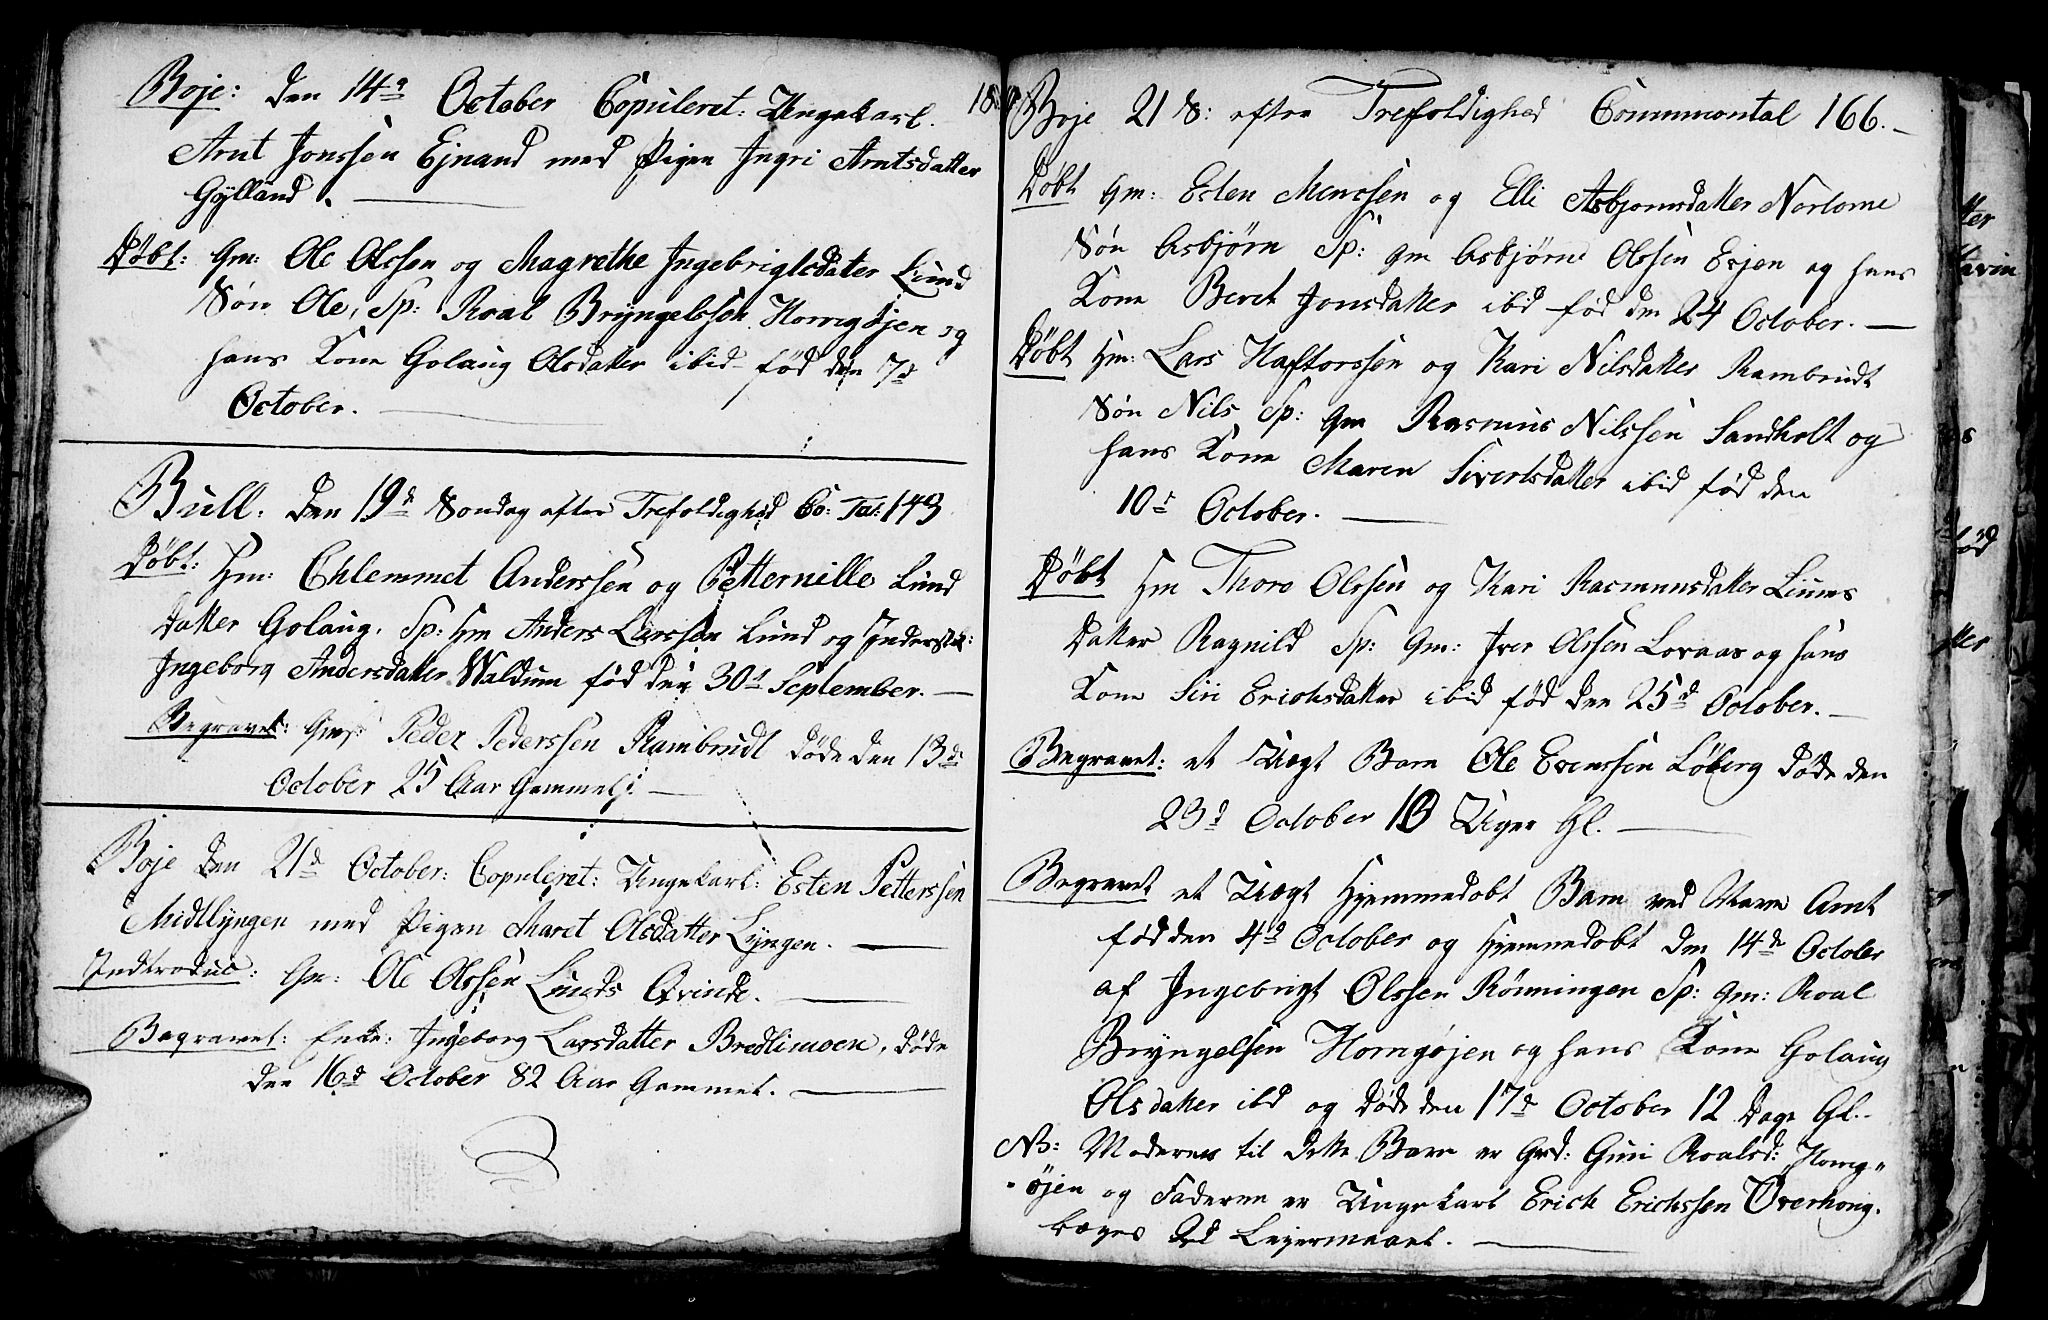 Boje: den 14de October Copuleret: Ungekarl.
Arnt Jonssen Ejnand med Pigen Ingri Arntsdatter
Gÿlland. —
Døbt: Gm: Ole Olssen og Magrethe Ingebrigtsdater Lund
Søn Ole, Sp: Roal Brÿngelssen Horrigøjen og
hans Kone Golaug Olsdatter ibid født den 7d
October. —
Bull. den 19de Søndag efter Trefoldighed Co: Tal: 143
Døbt: Hm: Chlemmet Anderssen og Petternille Lund
Datter Golaug. Sp: Hm Anders Larssen Lund og
Ingeborg Andersdatter Waldum fød den 30d September. —
Begravet: Gms: Peder Pederssen Rambrudt døde den 13d
October 25 Aar Gammel: —
Boje den 21d October: Copuleret: Ungekarl: Esten Petterssen
Midtlÿngen med Pigen Maret Olsdatter Lÿngen. —
Indtroduc: Gm: Ole Olssen Lunds Qvinde. —
Begravet: Enke: Ingeborg Larsdatter Bredlimoen, døde
den 16d October 82 Aar Gammel. —
18
Boje 21 S: efter Trefoldighed Communontal 166. —
Døbt Gm: Esten Monssen og Elli Asbjornsdatter Norlome
Søn Asbjørn Sp: Gm Asbjørn Olssen Erjen og hans
Kone Beret Jonsdatter ibid fød den 24 October. —
Døbt Hm: Lars Haftorssen og Kari Nilsdatter Rambrudt
Søn Nils Sp: Gm Rasmus Nilssen Sandholt og
hans Kone Maren Sivertsdatter ibid fød den
10d October. —
Døbt Hm Thore Olssen og Kari Rasmunsdatter Liums
Datter Ragnild Sp: Gm: Iver Olssen Lovaas og hans
Kone Siri Erichsdatter ibid fød den 25d October. —
Begravet: et Uægt Barn Ole Evenssen Løberg døde den
23d October 13 Uger Gl. —
Begravet et Uægt Hjemmedøbt Barn ved Navn Arnt
fød den 4d October og Hjemmedøbt den 14de October
af Ingebrigt Olssen Rønningen Sp: Gm: Roal
Brÿngelsen Horrigøjen og hans Kone Golaug
Olsdatter ibd og døde den 17d October 12 Dage Gl.
NB: Moderen til dette Barn er Grd: Guri Roalsd: Horrig-
øjen og Faderen er Ungekarl Erich Erichssen Overhoug.
begges Lejermaael. —